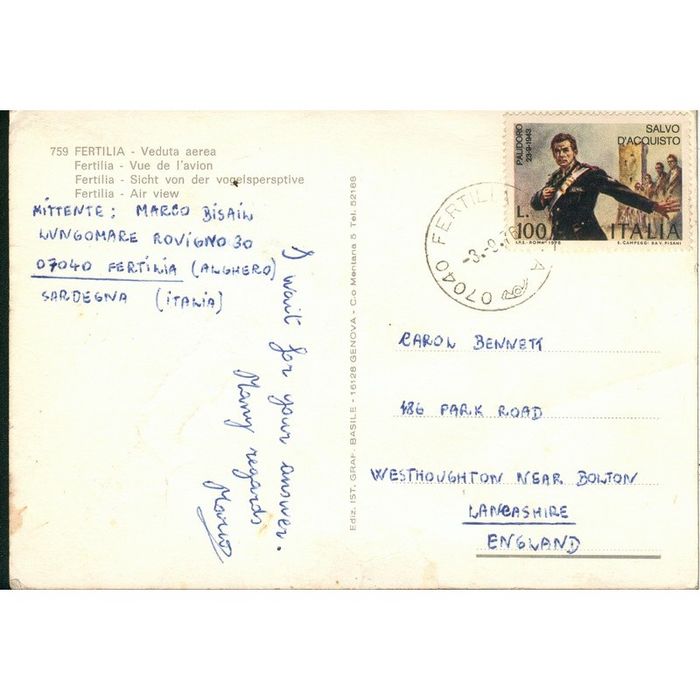 759 FERTILIA - Veduta aerea
Fertilia - Vue de l'avion
Fertilia - Sicht von der vogelspersptive
Fertilia - Air view
MITTENTE: MARCO BISAIN
LUNGOMARE ROVIGNO 30
07040 FERTILIA (ALGHERO)
SARDEGNA (ITALIA)
I wait for your answer.
Many regards
Mario
Ediz. IST. GRAF. BASILE - 16128 GENOVA - C.o Mentana 5 Tel. 52188
07040 FERTILIA
-3.-9.76
PALIDORO
23-9-1943
SALVO
D'ACQUISTO
L.
100 ITALIA
I.P.S. - ROMA - 1975 E. CAMPEGGI DA V. PISANI
CAROL BENNETT
186 PARK ROAD
WESTHOUGHTON NEAR BOLTON
LANCASHIRE
ENGLAND